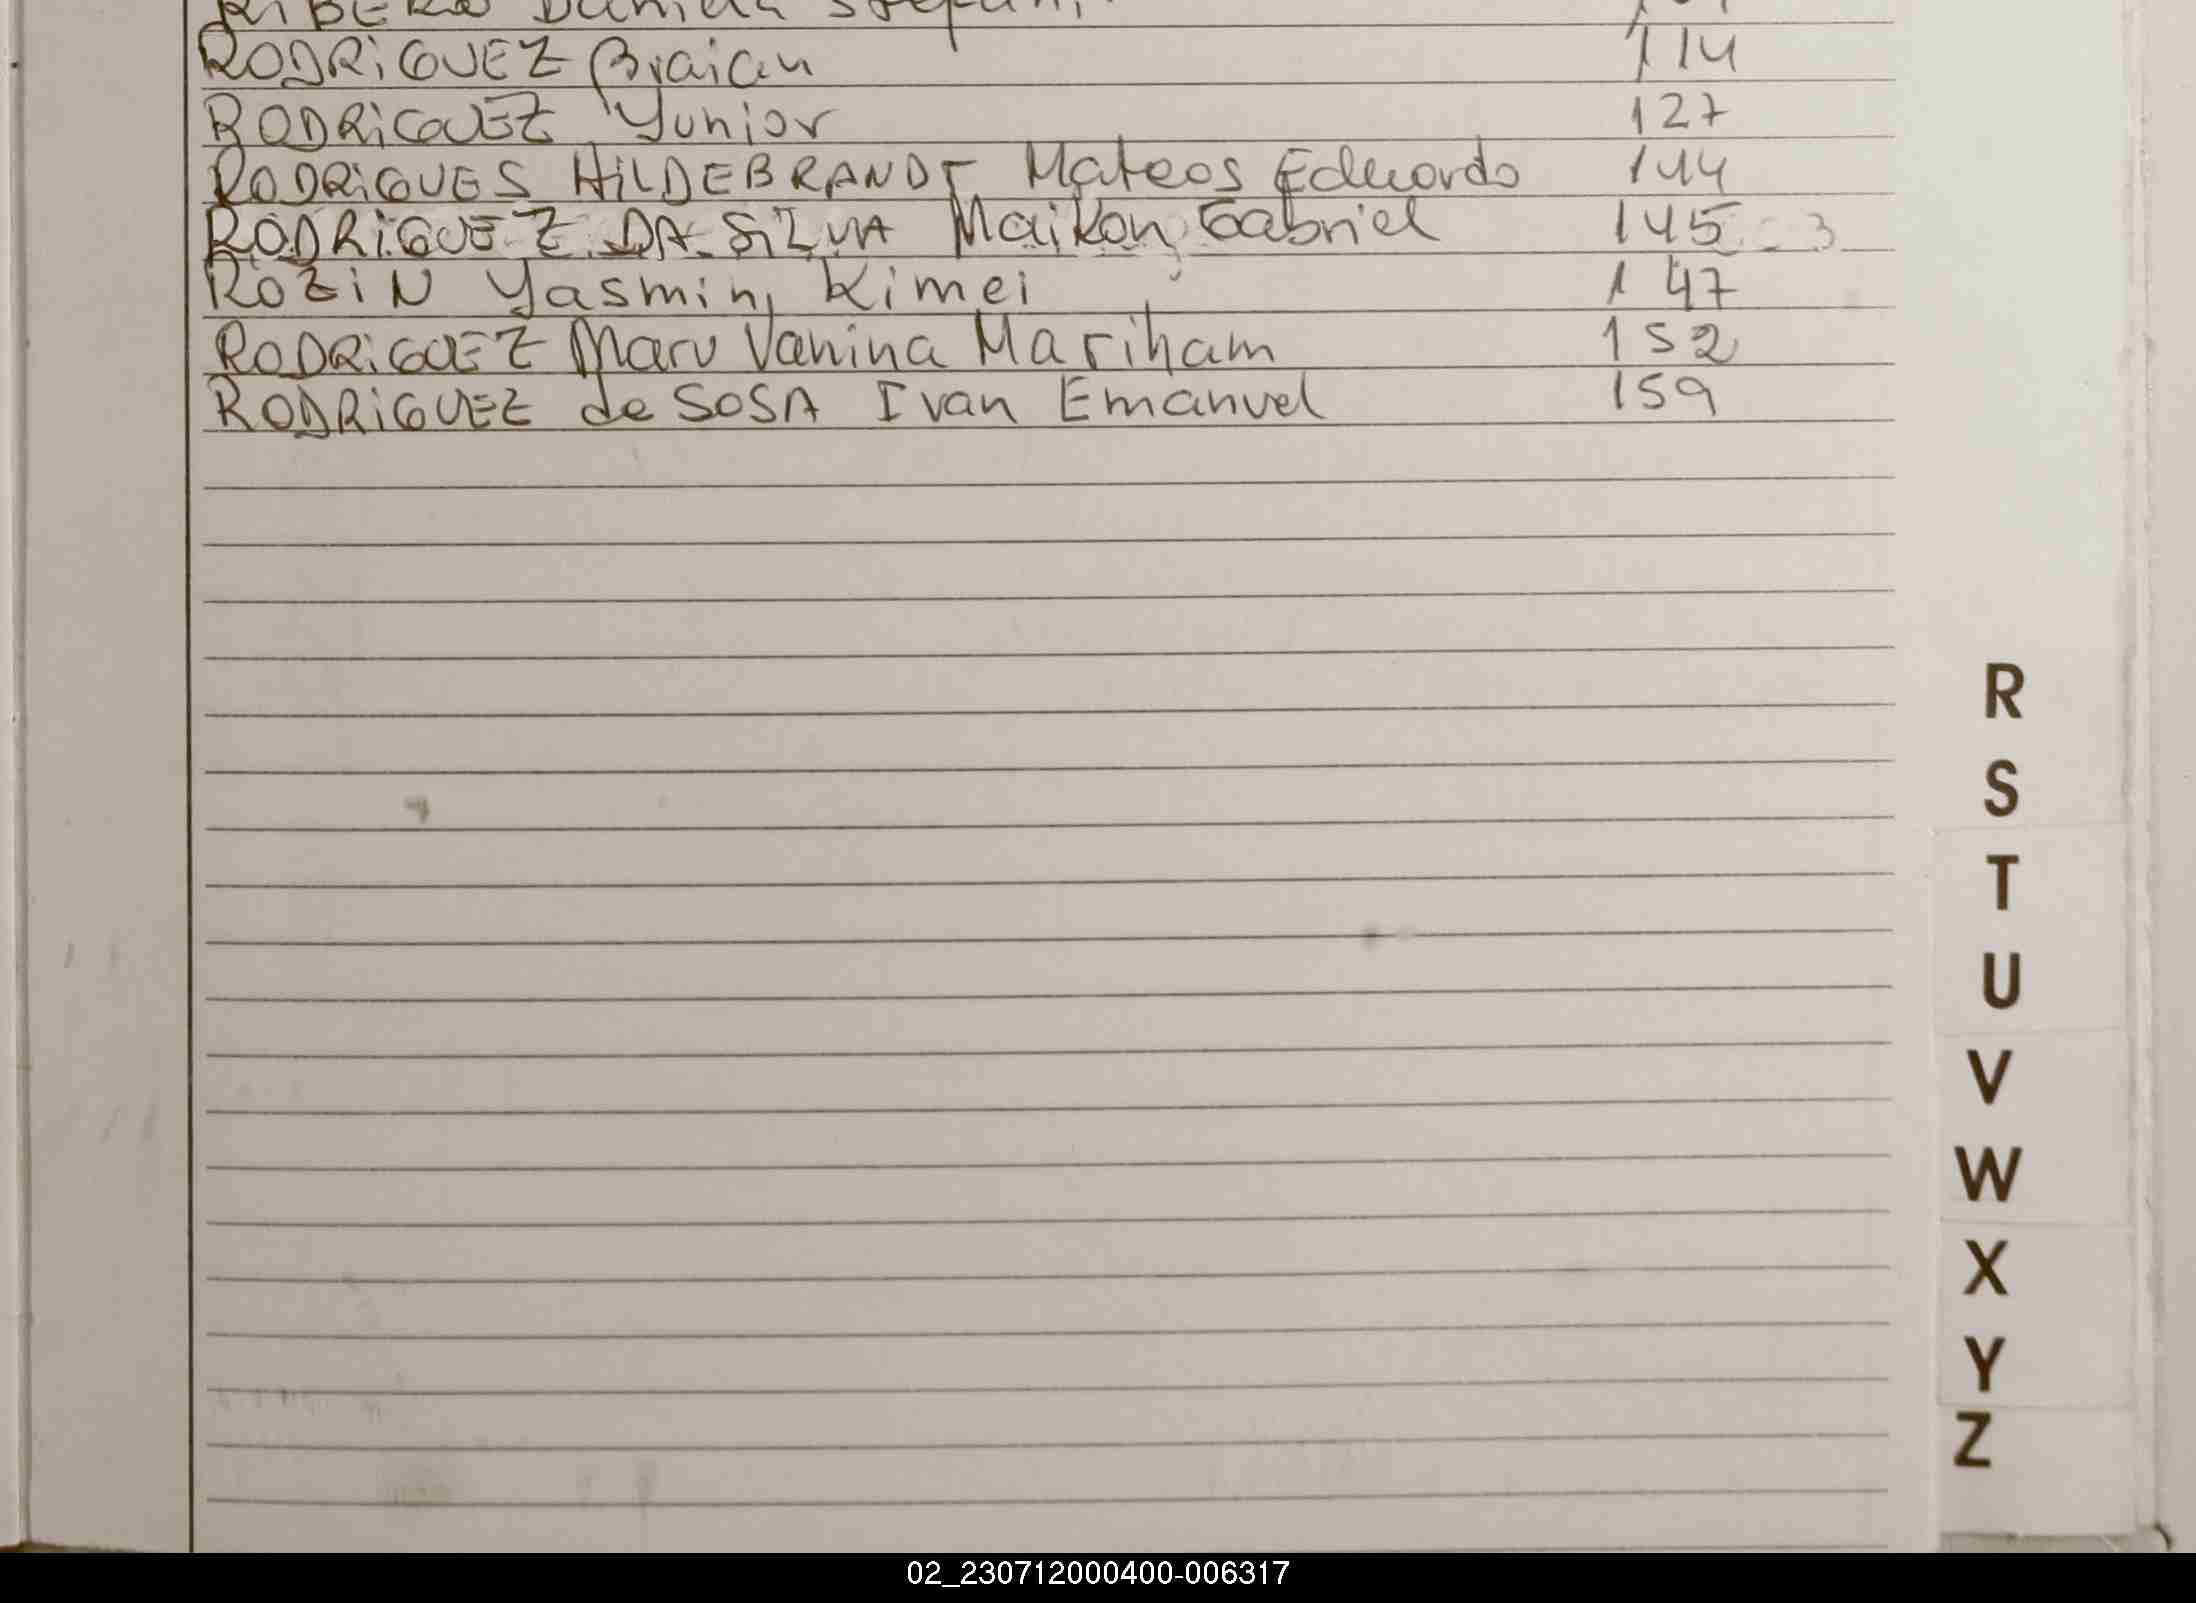 RODRIGUEZ Braian 114
RODRIGUEZ Yunior 127
RODRIGUES HILDEBRANDT Mateos Eduardo 144
RODRIGUEZ DA SILVA Maikon Gabriel 145
ROZIN Yasmin Kimei 147
RODRIGUEZ Maru Vanina Mariham 152
RODRIGUEZ de SOSA Ivan Emanuel 159
R
S
T
U
V
W
X
Y
Z
02_230712000400-006317